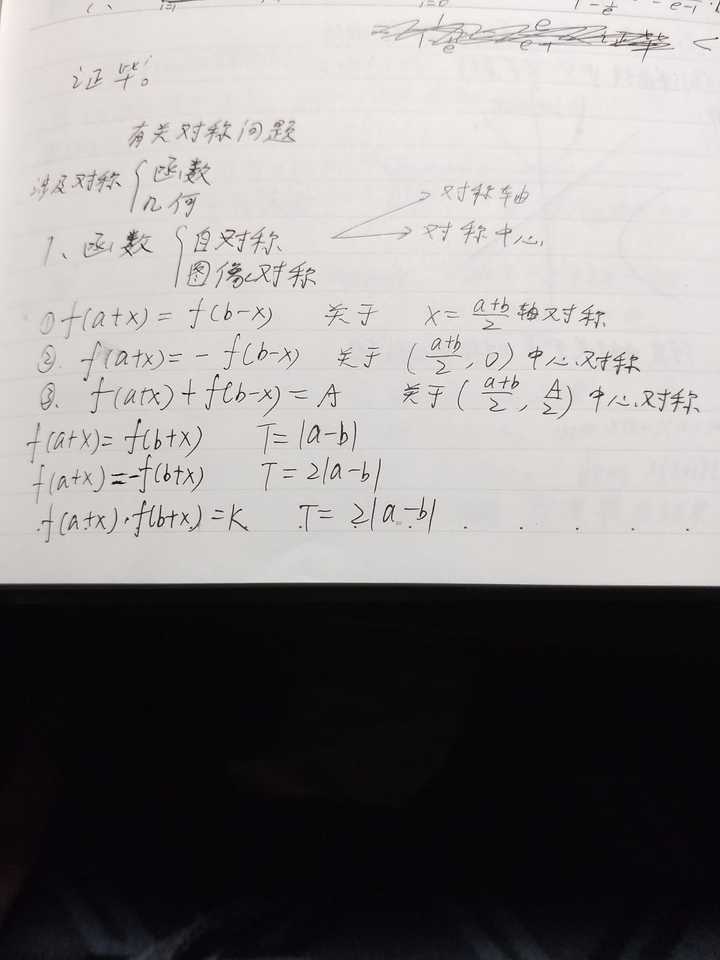 i=1 i=0 1-1/e e-1
证毕。
有关对称问题
涉及对称 { 函数
几何
对称轴
1、函数 { 自对称 对称中心
图像对称
① f(a+x) = f(b-x) 关于 x = (a+b)/2 轴对称
②. f(a+x) = - f(b-x) 关于 ((a+b)/2, 0) 中心对称
③. f(a+x) + f(b-x) = A 关于 ((a+b)/2, A/2) 中心对称
f(a+x) = f(b+x) T = |a-b|
f(a+x) = -f(b+x) T = 2|a-b|
f(a+x)·f(b+x) = K T = 2|a-b|